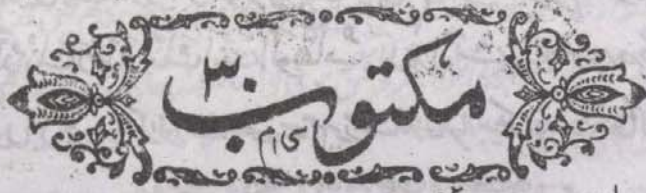 مکتوب ۳۰
سی ام